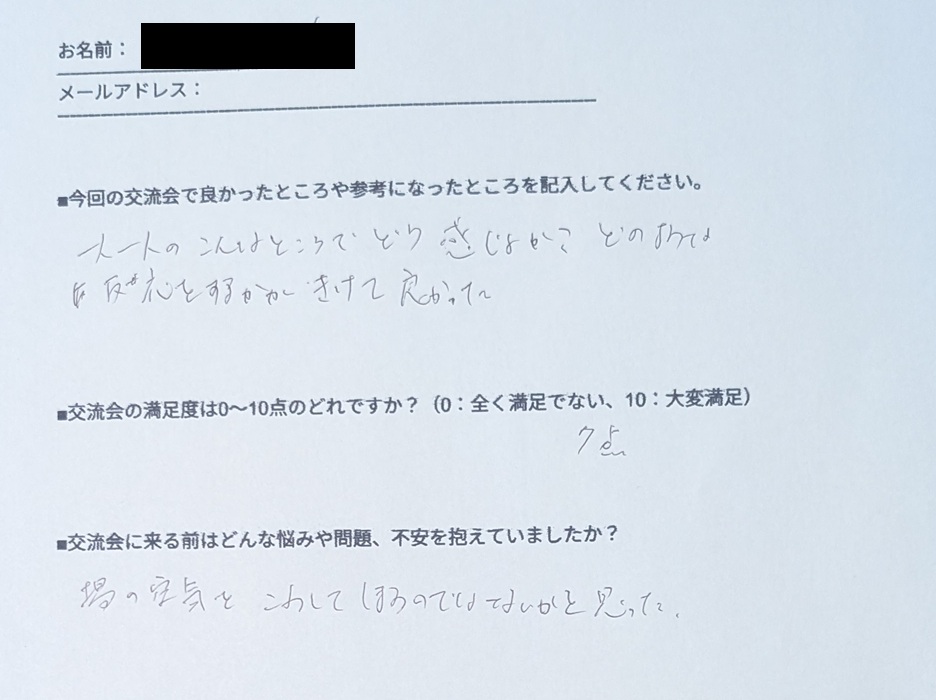 お名前：
メールアドレス：
■今回の交流会で良かったところや参考になったところを記入してください。
一人一人の こんなところで どう 感じるか？ どの
反応をするかが きけて 良かった
■交流会の満足度は0～10点のどれですか？（0：全く満足でない、10：大変満足）
7点
■交流会に来る前はどんな悩みや問題、不安を抱えていましたか？
場の空気を こわして しまうのではないかと思った。